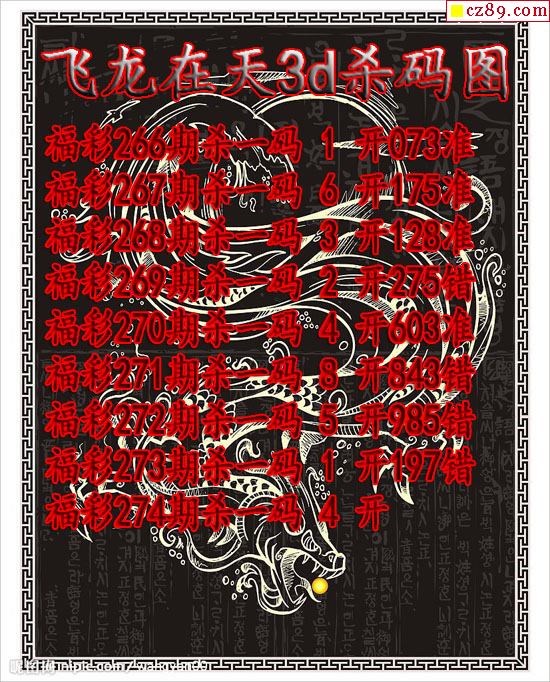 cz89.com
飞龙在天3d杀码图
福彩266期杀一码 1 开073准
福彩267期杀一码 6 开175准
福彩268期杀一码 3 开128准
福彩269期杀一码 2 开275错
福彩270期杀一码 4 开603准
福彩271期杀一码 8 开843错
福彩272期杀一码 5 开985错
福彩273期杀一码 1 开197错
福彩274期杀一码 4 开